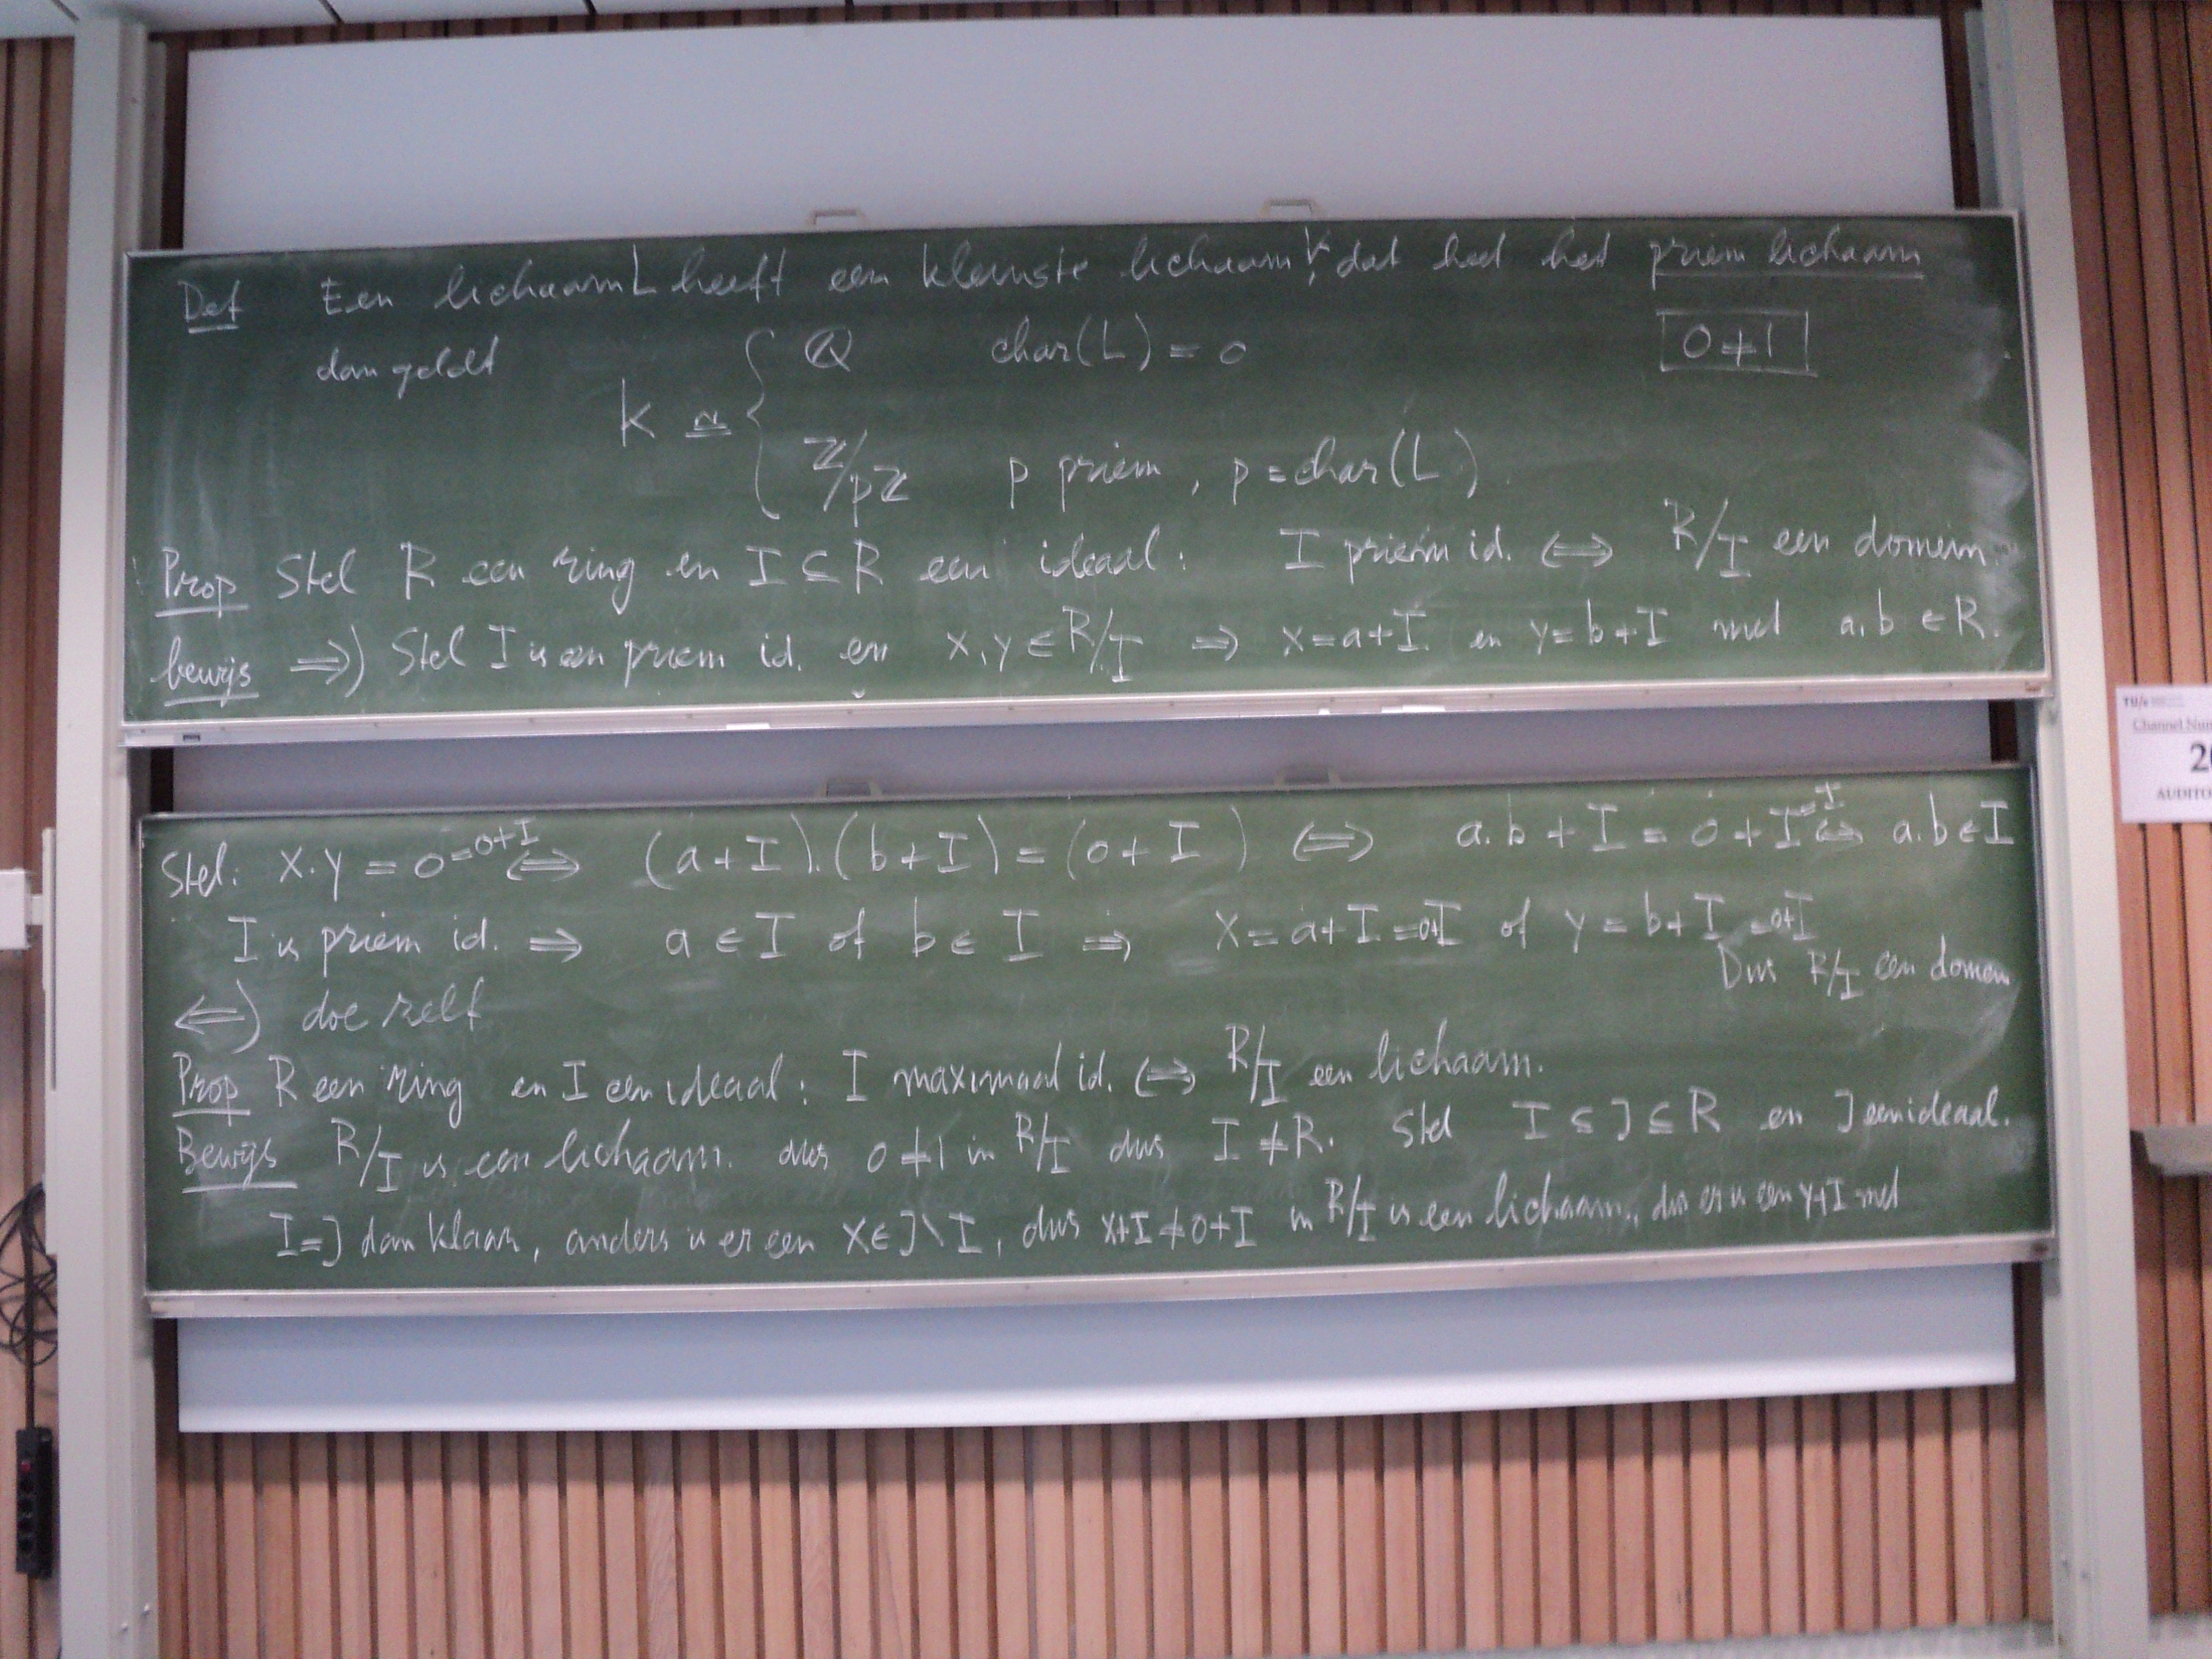 Def Een lichaam L heeft een kleinste lichaam K, dat heet het priem lichaam
dan geldt
K ≅ { Q char(L) = 0
0 ≠ 1
Z/pZ p priem, p = char(L)
Prop Stel R een ring en I ⊆ R een ideaal: I priem id. ⇔ R/I een domein.
bewijs ⇒) Stel I is een priem id. en x, y ∈ R/I ⇒ x = a+I en y = b+I met a, b ∈ R.
Stel: x·y = 0 = 0+I ⇔ (a+I)·(b+I) = (0+I) ⇔ a·b + I = 0 + I = I ⇔ a·b ∈ I
I is priem id. ⇒ a ∈ I of b ∈ I ⇒ x = a+I = 0+I of y = b+I = 0+I
Dus R/I een domein
⇐) doe zelf
Prop R een ring en I een ideaal: I maximaal id. ⇔ R/I een lichaam.
Bewijs R/I is een lichaam. dus 0 ≠ 1 in R/I dus I ≠ R. Stel I ⊆ J ⊆ R en J een ideaal.
I = J dan klaar, anders is er een x ∈ J \ I, dus x+I ≠ 0+I in R/I is een lichaam, dus er is een y+I met
TU/e
Channel Num
20
AUDITO